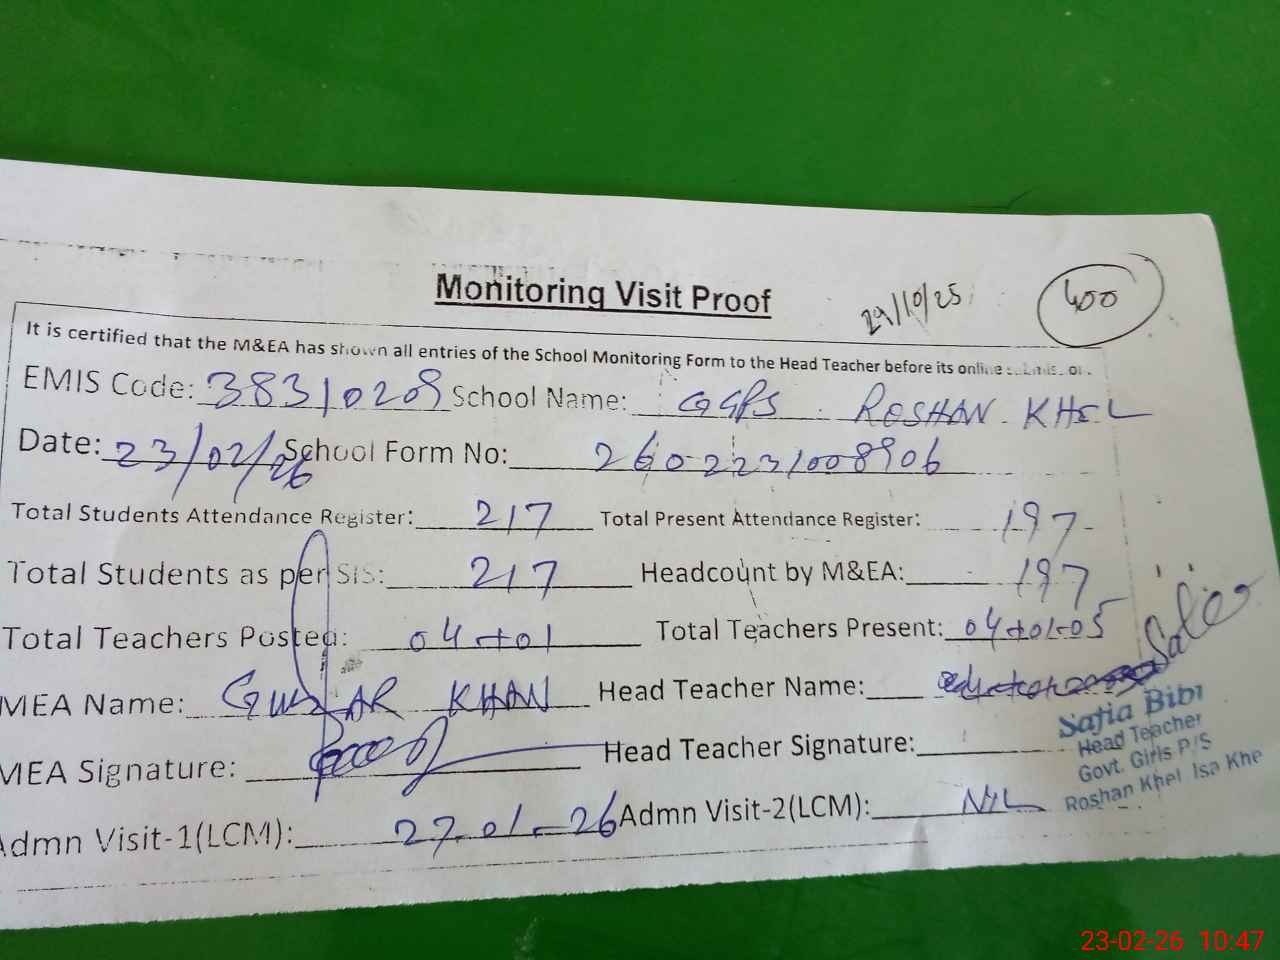 Monitoring Visit Proof
29/10/25
400
It is certified that the M&EA has shown all entries of the School Monitoring Form to the Head Teacher before its online
EMIS Code: 38310208 School Name: GGPS ROSHAN KHEL
Date: 23/02/26 School Form No: 2602231008906
Total Students Attendance Register: 217 Total Present Attendance Register: 197
Total Students as per SIS: 217 Headcount by M&EA: 197
Total Teachers Posted: 04+01 Total Teachers Present: 04+01-05
MEA Name: GULZAR KHAN Head Teacher Name:
Safia Bibi
Head Teacher
Govt. Girls P/S
Roshan Khel Isa Khe
MEA Signature: Head Teacher Signature:
Admn Visit-1(LCM): 27-01-26 Admn Visit-2(LCM): NIL
23-02-26 10:47